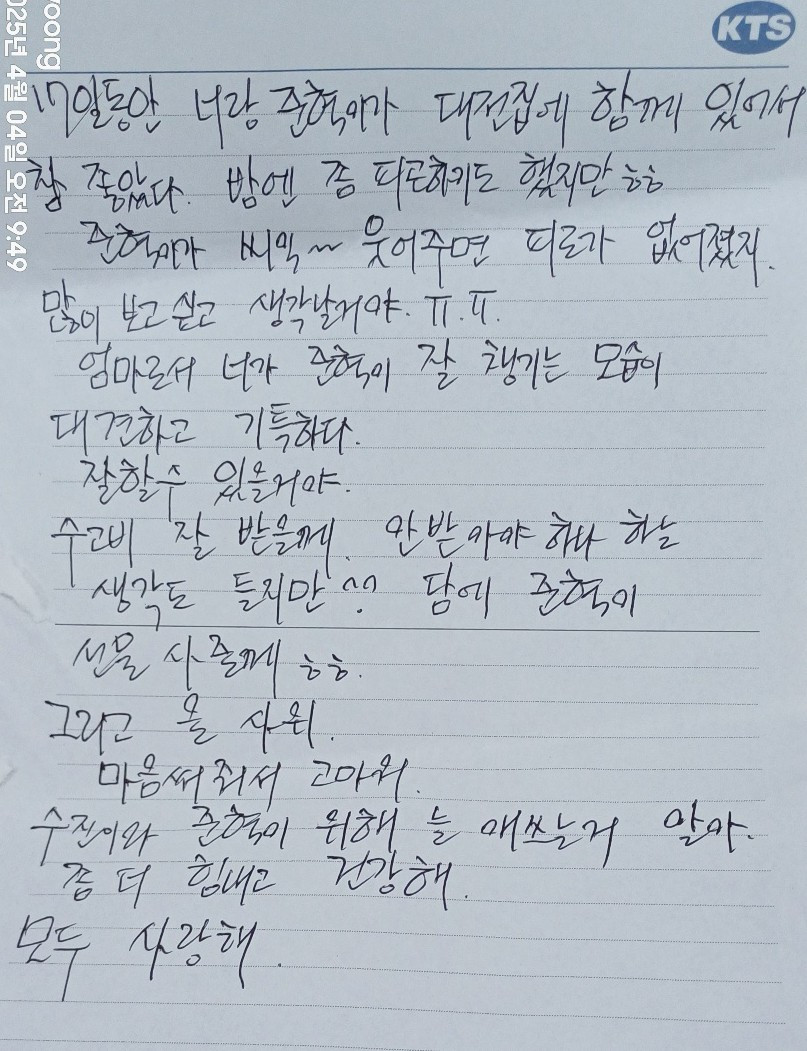 KTS
oong
025년 4월 04일 오전 9:49
17일동안 너랑 준혁이가 대전집에 함께 있어서
참 좋았다. 밤엔 좀 피곤하기도 했지만 ㅎㅎ
준혁이가 씨익~ 웃어주면 피로가 없어졌지.
많이 보고 싶고 생각날거야. ㅠ.ㅠ.
엄마로서 너가 준혁이 잘 챙기는 모습이
대견하고 기특하다.
잘할수 있을거야.
수고비 잘 받을께. 안받아야 하나 하는
생각도 들지만 ^^ 담에 준혁이
선물 사줄께 ㅎㅎ.
그리고 울 사위.
마음써줘서 고마워.
수진이와 준혁이 위해 늘 애쓰는거 알아.
좀 더 힘내고 건강해.
모두 사랑해.